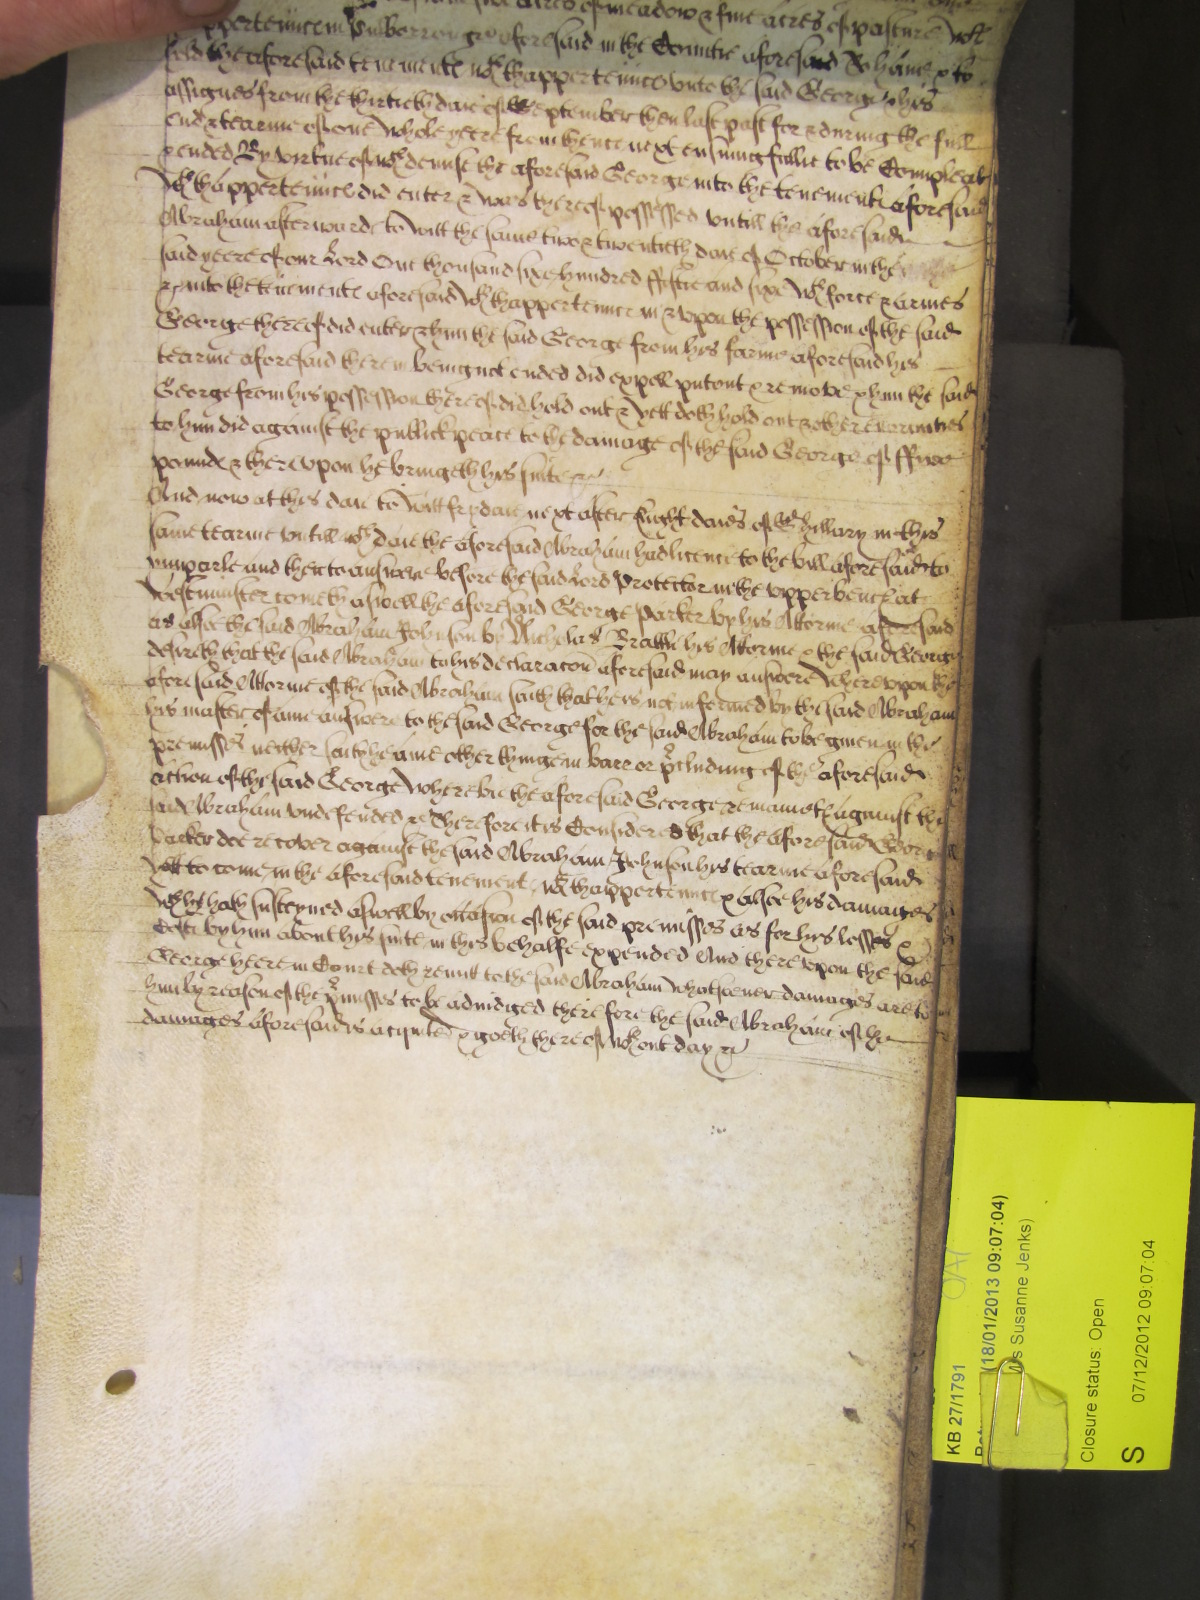 acres of meadow & fiue acres of pasture wth
thappertein̄ces in aforesaid in the Countie aforesaid To haue & to
hold the aforesaid tenementes wth thappertein̄ces vnto the said George & his
assignes from the thirtieth daie of September then last past for & during the full
end & tearme of one whole yeere from thence next ensuing fullie to be Compleat
& ended By virtue of wch demise the aforesaid George into the tenementes aforesaid
wth thappertein̄ces did enter & was thereof possessed vntill the aforesaid
Abraham afterwardes to witt the same two & twentieth daie of October in the
said yeere of our Lord One thousand sixe hundred fiftie and sixe wth force & armes
&c into the tenementes aforesaid wth thappertein̄ces in & vpon the possession of the said
George thereof did enter & him the said George from his farme aforesaid his
tearme aforesaid therein being not ended did expell put out & remove & him the said
George from his possession thereof did hold out & yett doth hold out & other enormities
to him did against the publick peace to the damage of the said George of ffive
poundes & therevpon he bringeth his suite &c
And now at this daie to witt frydaie next after Eight daies of St hillary in this
same tearme vntill wch daie the aforesaid Abraham had licence to the bill aforesaid to
imparle and then to answere before the said Lord Protector in the vpper bench at
Westminster cometh aswell the aforesaid George Parker by his Attornie aforesaid
as alsoe the said Abraham Johnson by Nicholas his Attornie & the said George
desireth that the said Abraham to his declaracon aforesaid may answere Wherevpon the
aforesaid Attornie of the said Abraham saith that he is not informed by the said Abraham
his master of anie answere to the said George for the said Abraham to be given in the
premisses neither saith he anie other thinge in barr or p̄cluding of the aforesaid
action of the said George Wherebie the aforesaid George remaineth against the
said Abraham vndefended &c Therefore it is Considered that the aforesaid George
Parker doe recover against the said Abraham Johnson his tearme aforesaid
yett to come in the aforesaid tenementes wth thappertein̄ces & alsoe his damages
wch he hath susteyned aswell by occasion of the said premisses as for his losses &
Costes by him about his suite in this behalfe expended And therevpon the said
George heere in Court doth remitt to the said Abraham whatsoever damages are to
him by reason of the p̄misses to be adiudged therefore the said Abraham of the
damages aforesaid is acquited & goeth thereof wthout day &c
KB 27/1791
(18/01/2013 09:07:04)
Susanne Jenks)
Closure status: Open
S
07/12/2012 09:07:04